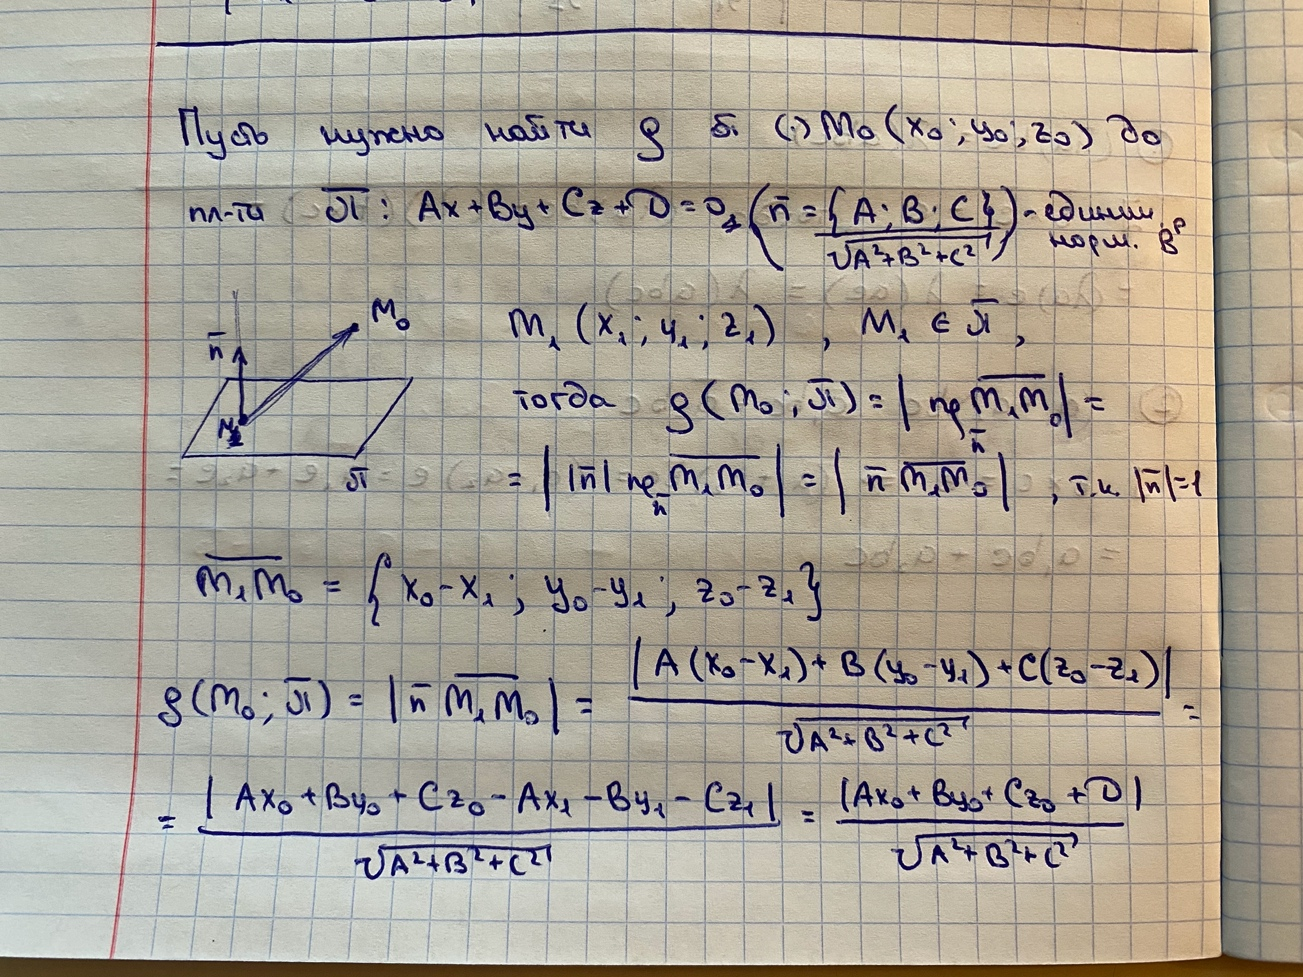 Пусть нужно найти ρ от (·) M₀(x₀; y₀; z₀) до
пл-ти π: Ax+By+Cz+D=0, (n̄ = {A; B; C} / √(A²+B²+C²)) - единич. норм. в^р
n̄ M₀
M₁ (x₁; y₁; z₁) , M₁ ∈ π ,
M₁
π
тогда ρ(M₀; π) = |пр_n̄ M₁M₀| =
= ||n̄| пр_n̄ M₁M₀| = |n̄ M₁M₀| , т.к. |n̄|=1
M₁M₀ = {x₀-x₁; y₀-y₁; z₀-z₁}
ρ(M₀; π) = |n̄ M₁M₀| = |A(x₀-x₁)+B(y₀-y₁)+C(z₀-z₁)| / √(A²+B²+C²) =
= |Ax₀+By₀+Cz₀-Ax₁-By₁-Cz₁| / √(A²+B²+C²) = |Ax₀+By₀+Cz₀+D| / √(A²+B²+C²)